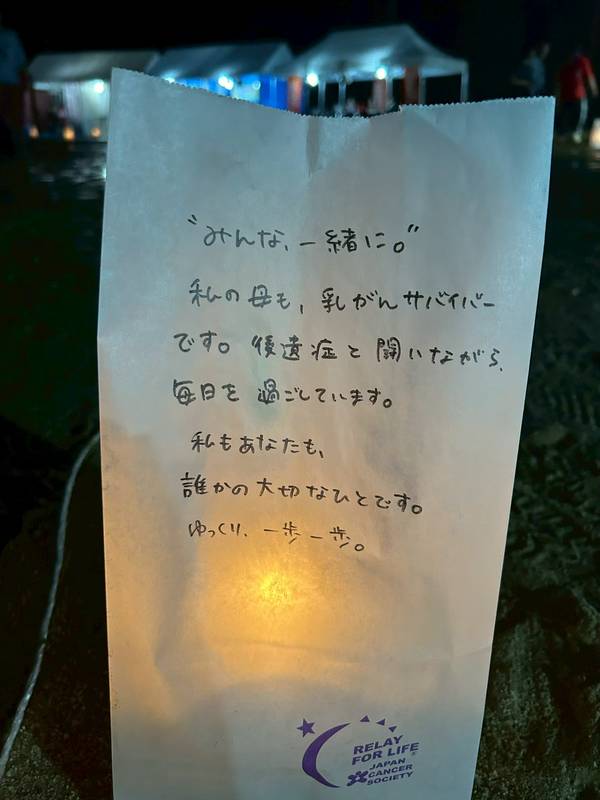 "みんな、一緒に。"
私の母も、乳がんサバイバー
です。後遺症と闘いながら、
毎日を過ごしています。
私もあなたも、
誰かの大切なひとです。
ゆっくり、一歩一歩。
RELAY
FOR LIFE®
JAPAN
CANCER
SOCIETY